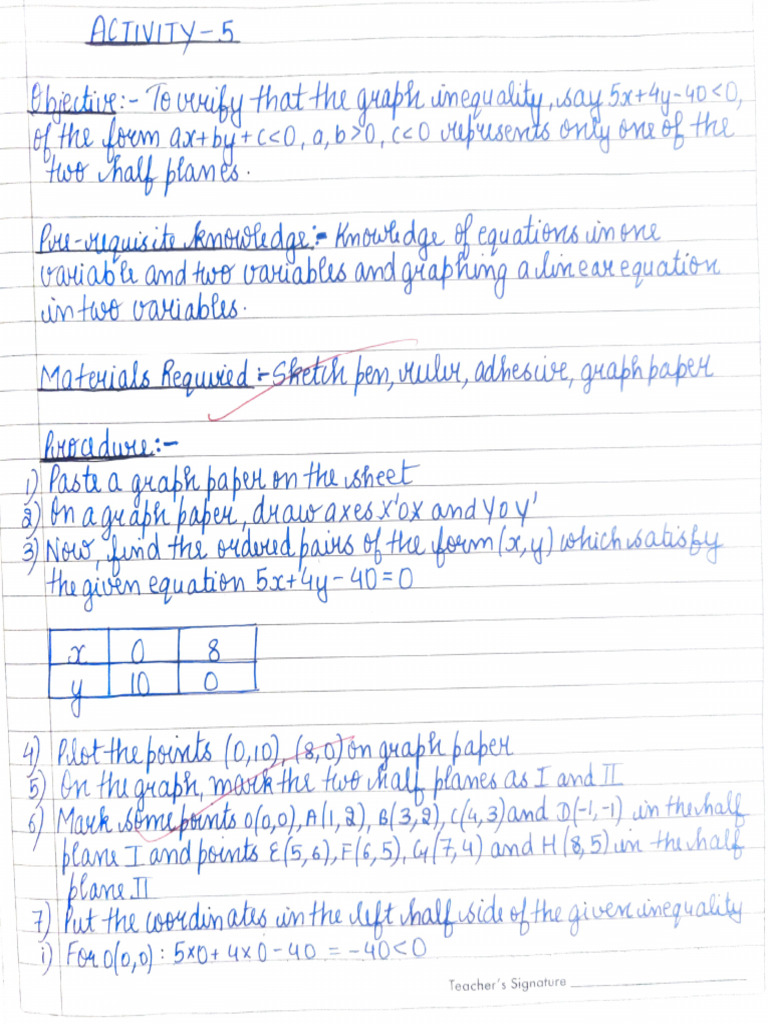 ACTIVITY-5
Objective:- To verify that the graph inequality, say 5x+4y-40<0,
of the form ax+by+c<0, a, b>0, c<0 represents only one of the
two half planes.
Pre-requisite knowledge:- Knowledge of equations in one
variable and two variables and graphing a linear equation
in two variables.
Materials Required:- Sketch pen, ruler, adhesive, graph paper
Procedure:-
1) Paste a graph paper on the sheet
2) On a graph paper, draw axes X'OX and YOY'
3) Now, find the ordered pairs of the form (x,y) which satisfy
the given equation 5x+4y-40=0
x 0 8
y 10 0
4) Plot the points (0,10), (8,0) on graph paper
5) On the graph, mark the two half planes as I and II
6) Mark some points O(0,0), A(1,2), B(3,2), C(4,3) and D(-1,-1) in the half
plane I and points E(5,6), F(6,5), G(7,4) and H(8,5) in the half
plane II
7) Put the coordinates in the left half side of the given inequality
i) For O(0,0) : 5×0+4×0-40 = -40<0
Teacher's Signature